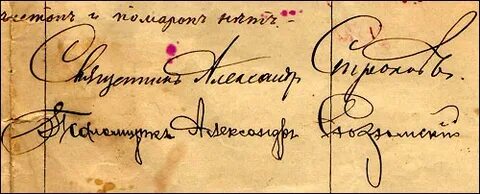 чистокъ и помарокъ нѣтъ.-
Священникъ Александръ Строковъ.
Псаломщикъ Александръ